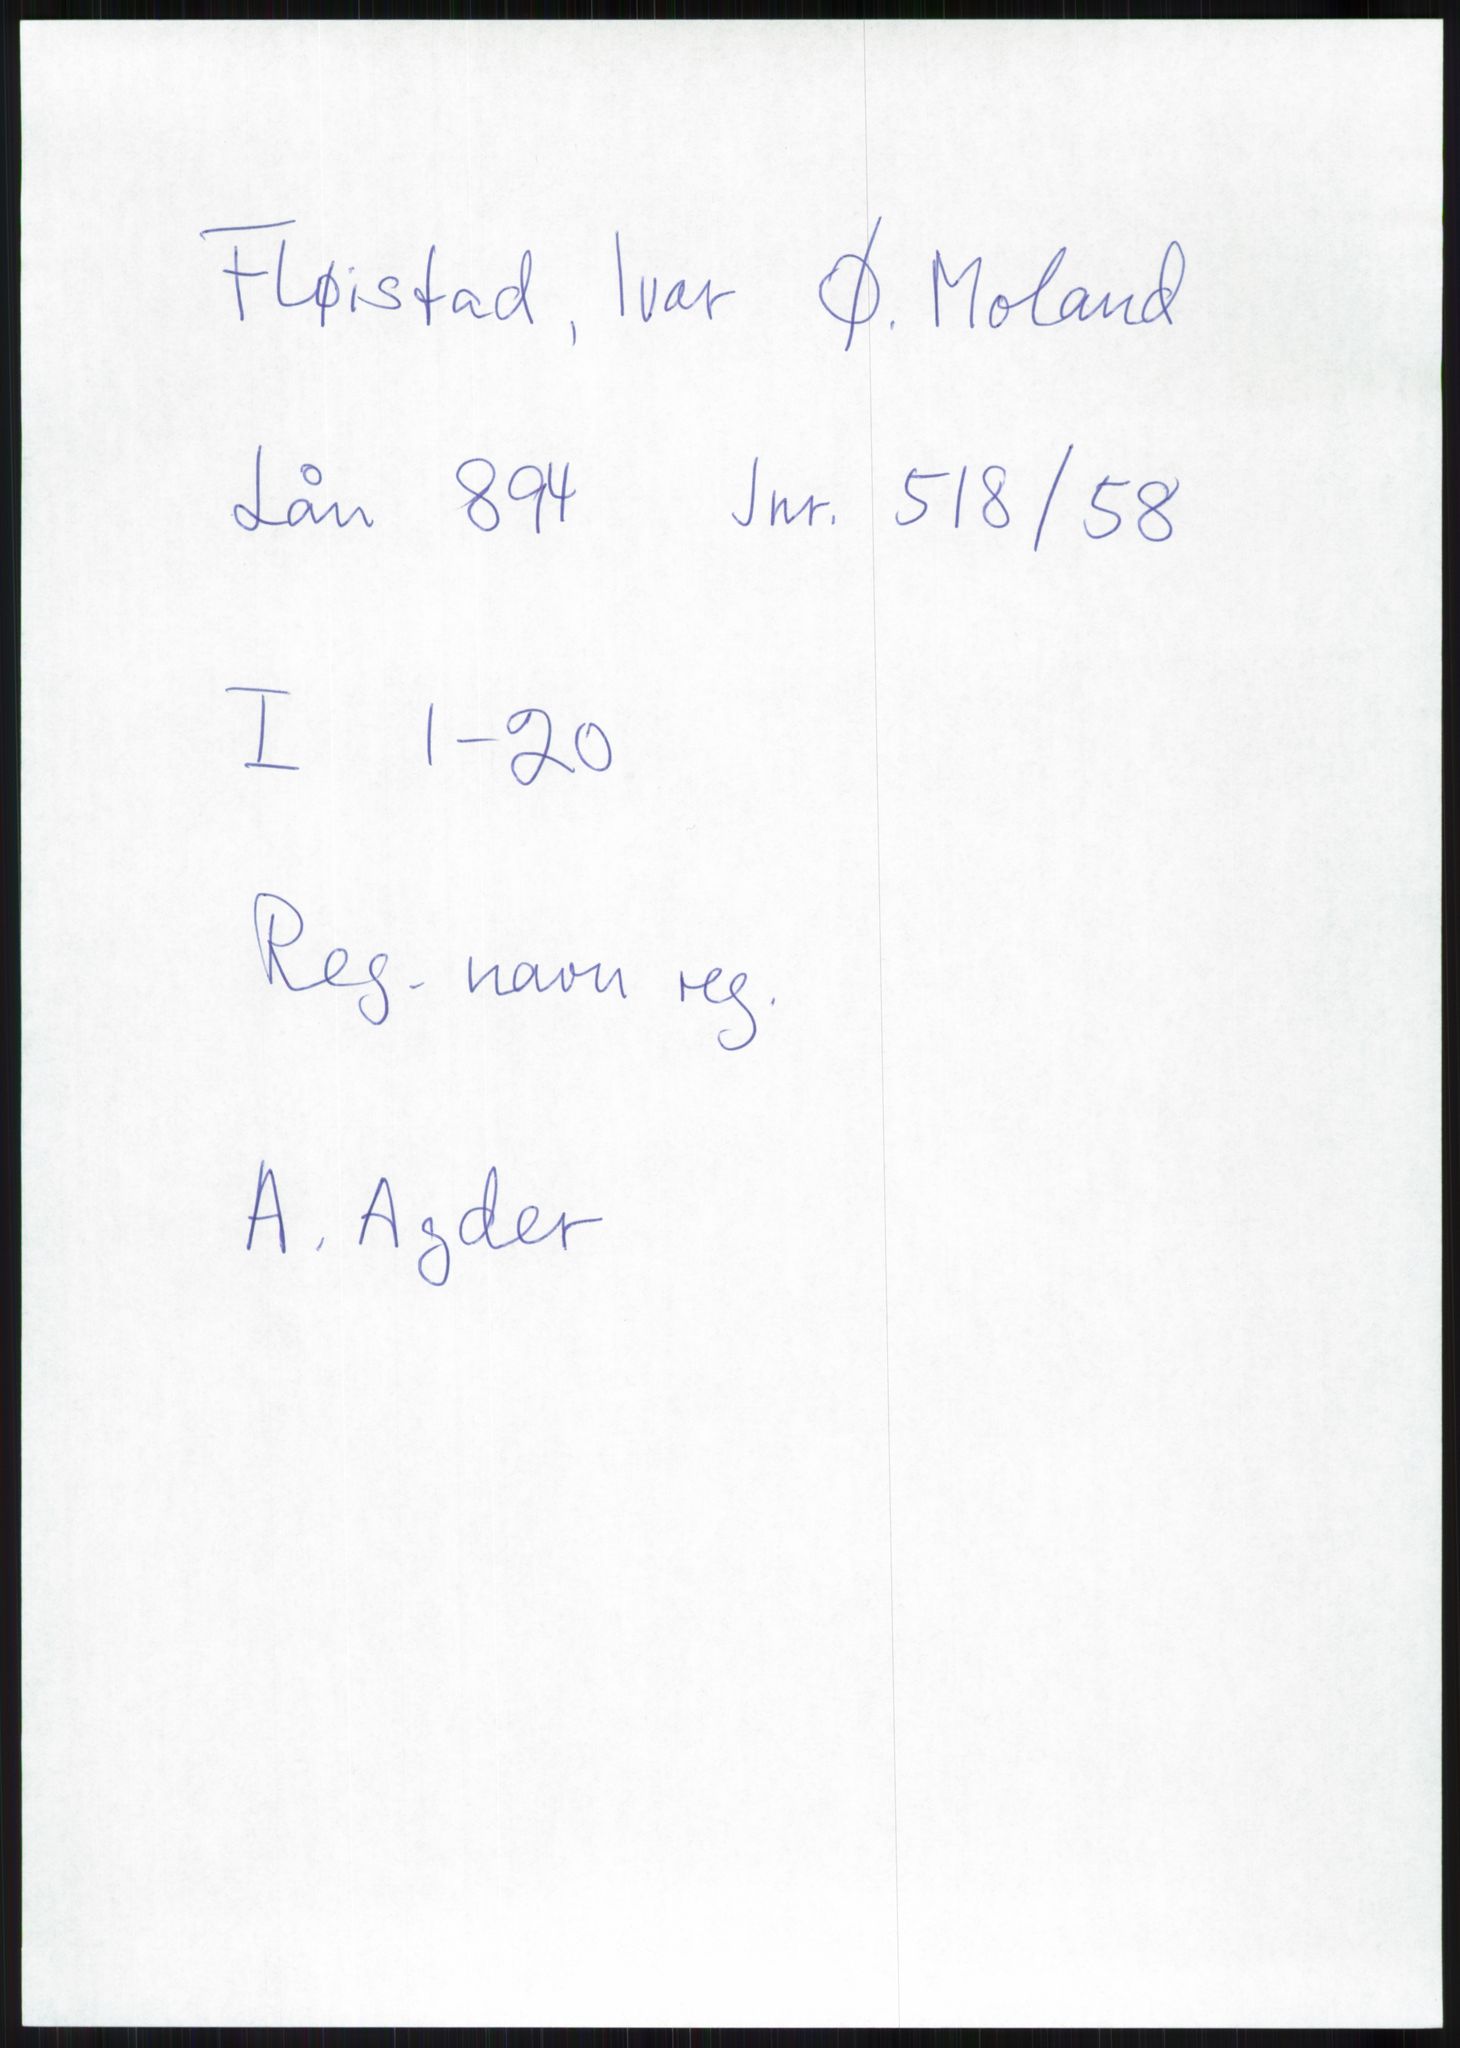 Fløistad, Ivar Ø. Moland
Lån 894 Jnr. 518/58
I 1-20
Reg. navn reg.
A. Agder